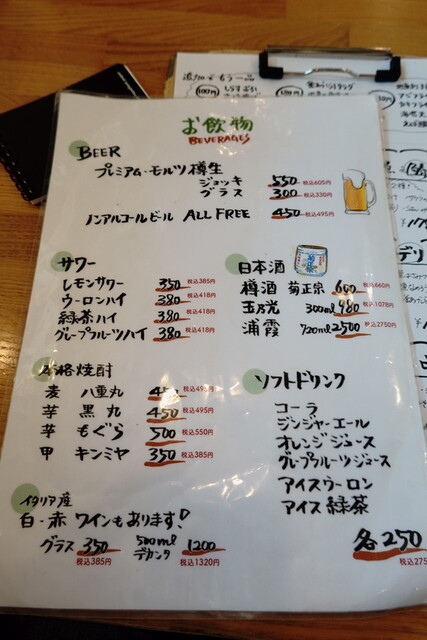 お飲物
BEVERAGES
BEER
プレミアム・モルツ 樽生
ジョッキ 550 税込605円
グラス 300 税込330円
ノンアルコールビール ALL FREE 450 税込495円
サワー
レモンサワー 350 税込385円
ウーロンハイ 380 税込418円
緑茶ハイ 380 税込418円
グレープフルーツハイ 380 税込418円
日本酒
樽酒 菊正宗 600 税込660円
玉乃光 300ml 980 税込1078円
浦霞 720ml 2500 税込2750円
本格焼酎
麦 八重丸 450 税込495円
芋 黒丸 450 税込495円
芋 もぐら 500 税込550円
甲 キンミヤ 350 税込385円
ソフトドリンク
コーラ
ジンジャーエール
オレンジジュース
グレープフルーツジュース
アイスウーロン
アイス緑茶
各250
税込275
イタリア産
白・赤 ワインもあります!
グラス 350 税込385円
500ml デカンタ 1200 税込1320円